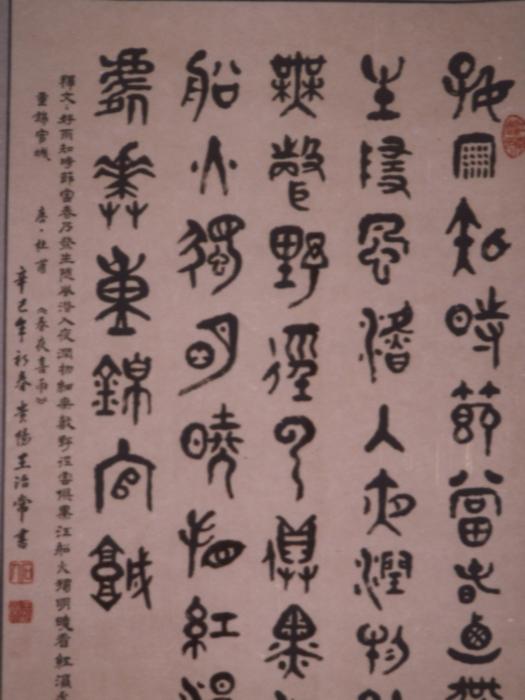 好雨知時節當春乃發
生隨風潛入夜潤物細
無聲野徑雲俱黑
船火獨明曉看紅濕
處華重錦官城
釋文：好雨知時節當春乃發生隨風潛入夜潤物細無聲野徑雲俱黑江船火獨明曉看紅濕處
重錦官城 唐·杜甫《春夜喜雨》
辛巳年初春貴陽王治常書